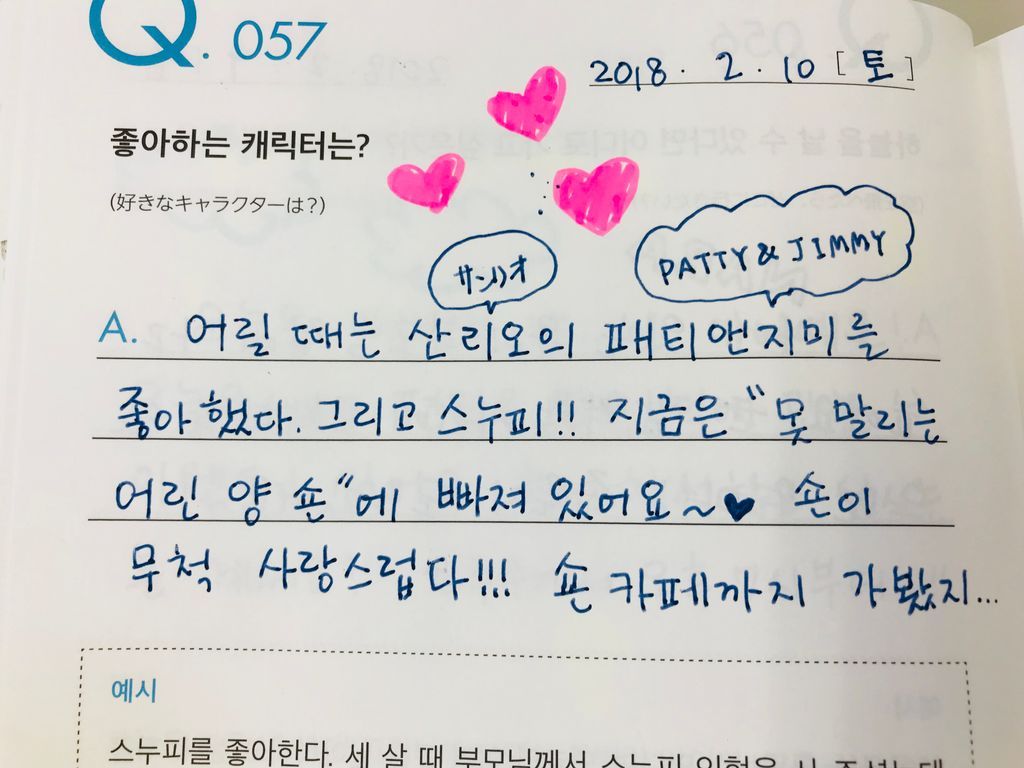 Q. 057
2018. 2. 10 [토]
좋아하는 캐릭터는?
(好きなキャラクターは?)
サンリオ
PATTY & JIMMY
A. 어릴 때는 산리오의 패티앤지미를
좋아했다. 그리고 스누피!! 지금은 "못 말리는
어린 양 숀"에 빠져 있어요~♥ 숀이
무척 사랑스럽다!!! 숀 카페까지 가봤지...
예시
스누피를 좋아한다. 세 살 때 부모님께서 스누피 인형을 사 주셨는데